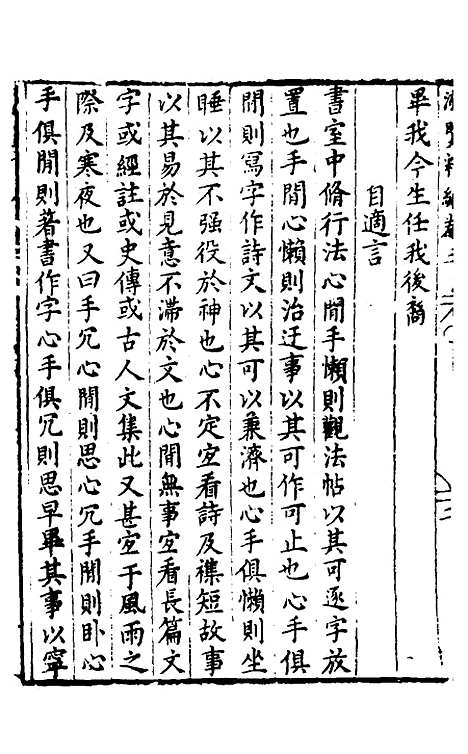 畢我今生任我後裔
自適言
書室中脩行法心閒手懶則觀法帖以其可逐字放
置也手閒心懶則治迂事以其可作可止也心手俱
閒則寫字作詩文以其可以兼濟也心手俱懶則坐
睡以其不强役於神也心不定宜看詩及襍短故事
以其易於見意不滯於文也心閒無事宜看長篇文
字或經註或史傳或古人文集此又甚宜于風雨之
際及寒夜也又曰手冗心閒則思心冗手閒則卧心
手俱閒則著書作字心手俱冗則思早畢其事以寧